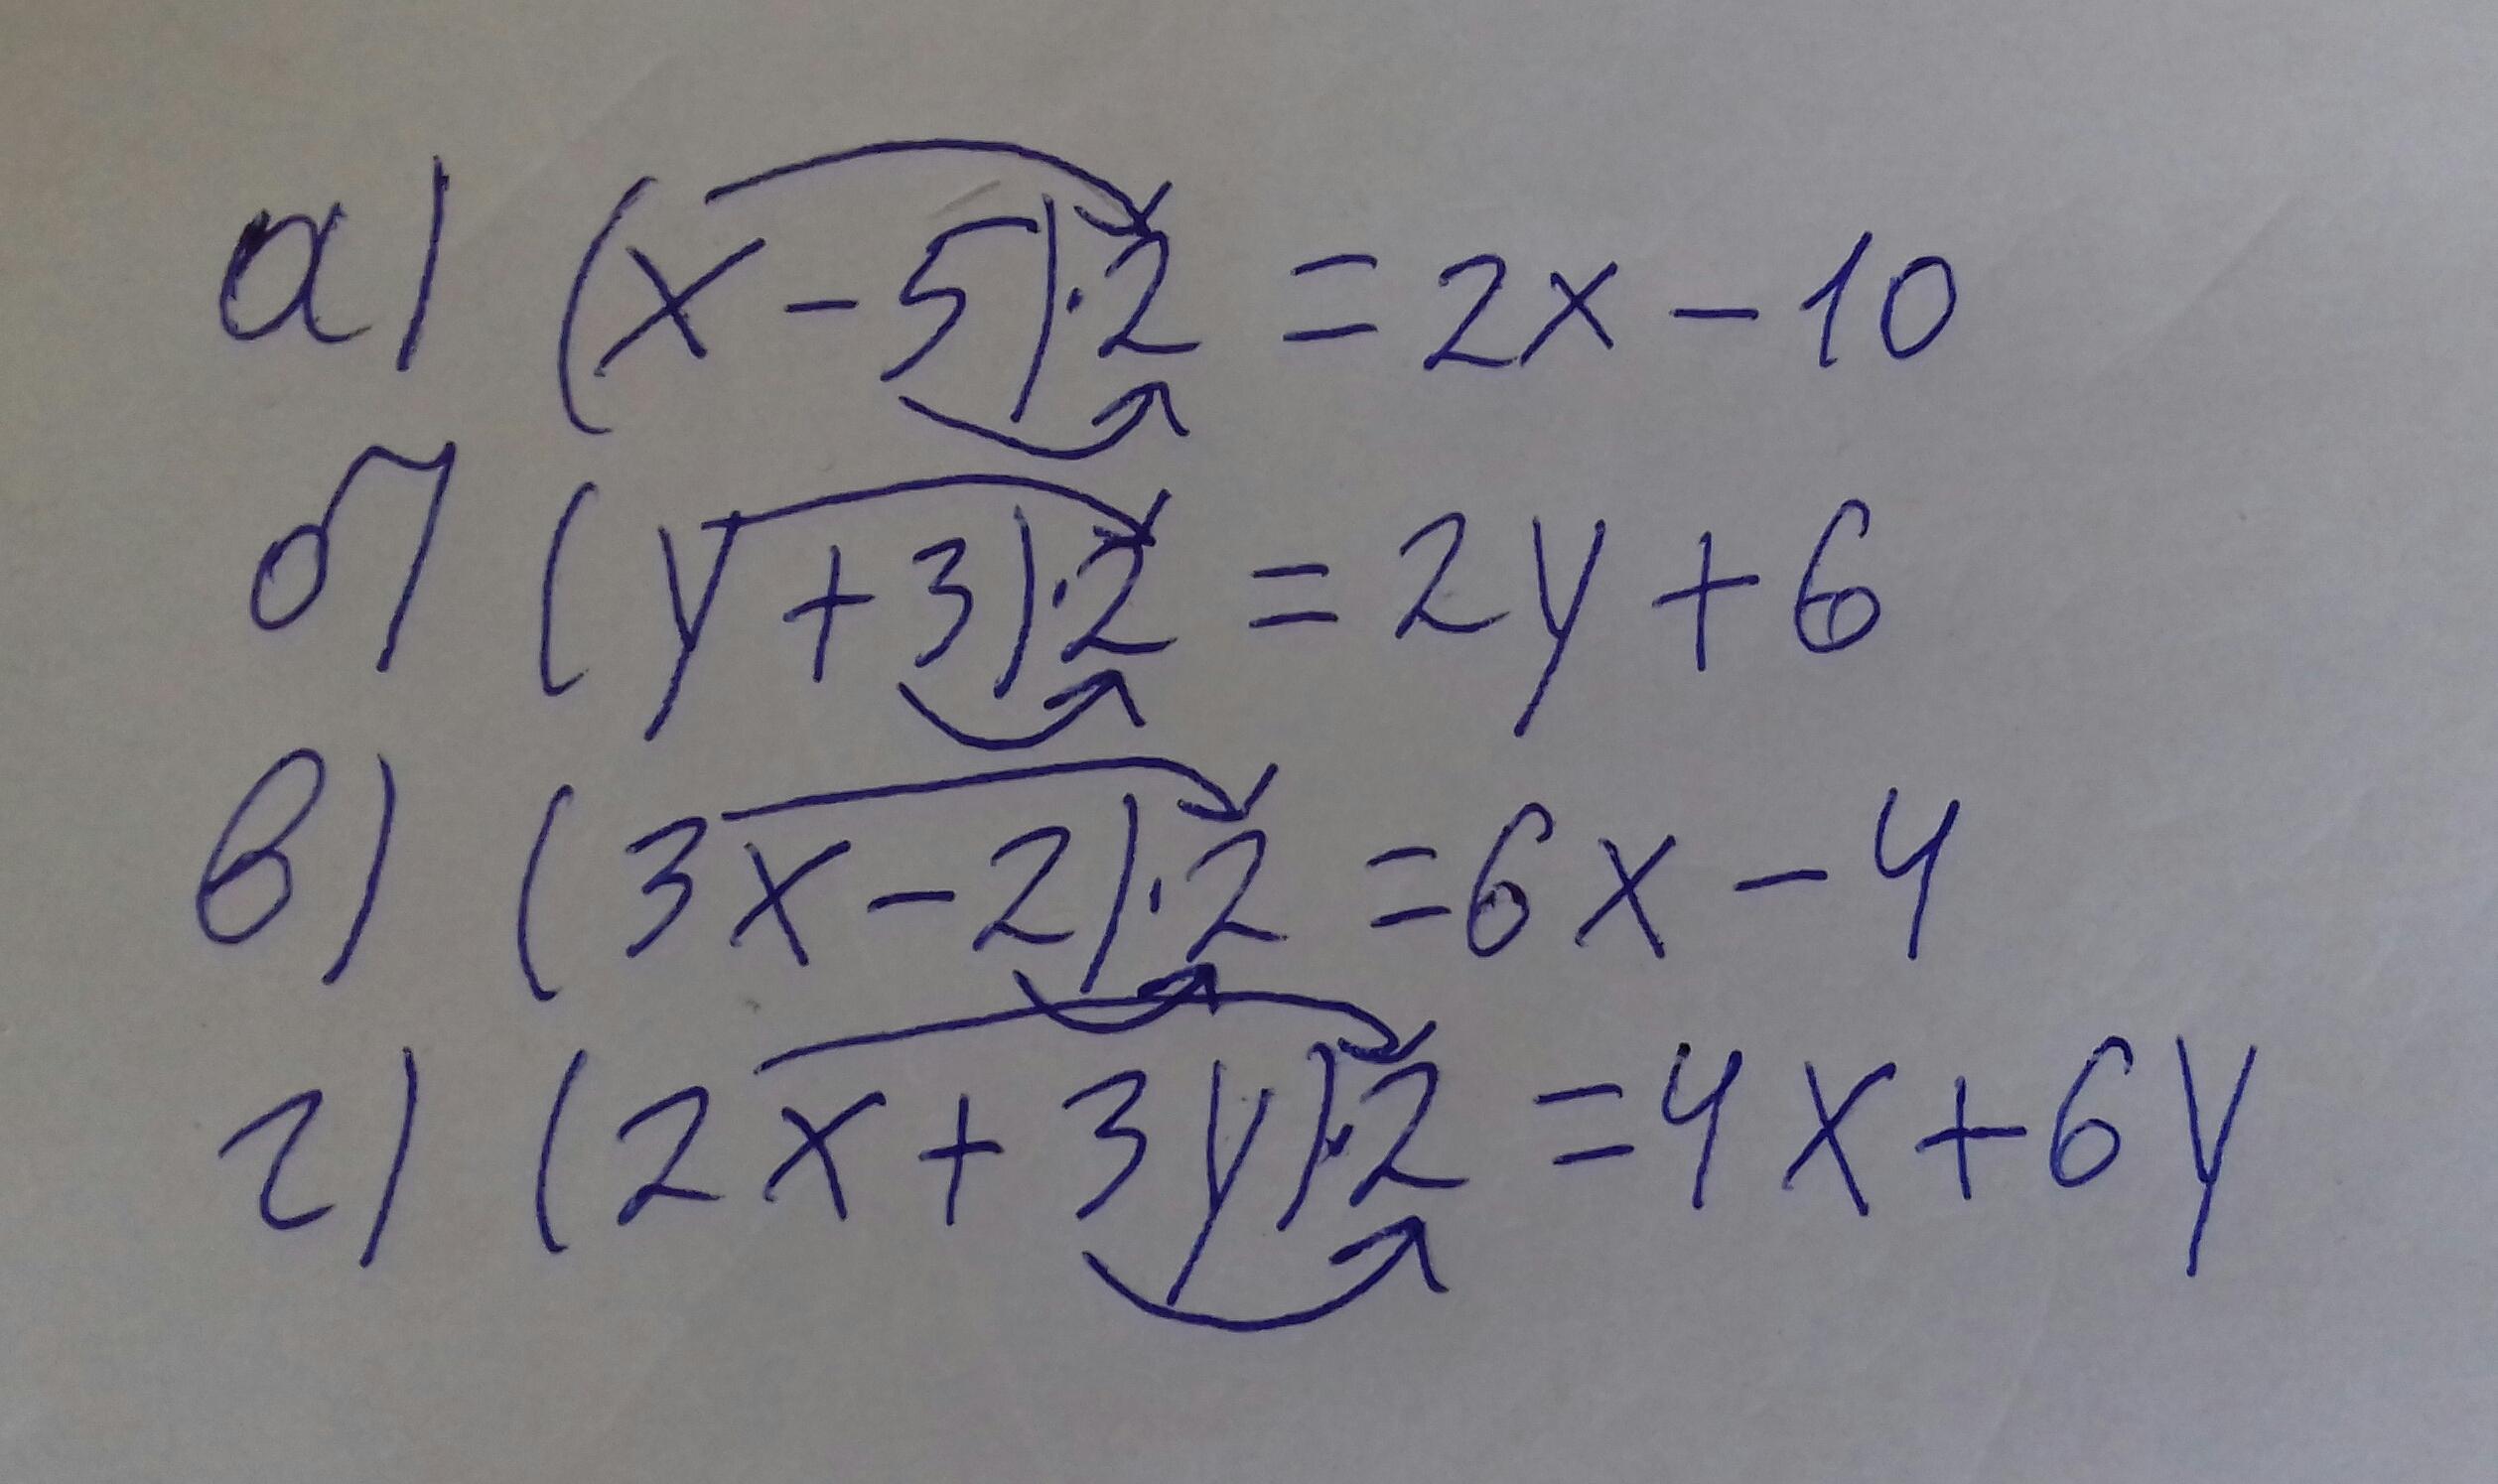 а) (x - 5) · 2 = 2x - 10
б) (y + 3) · 2 = 2y + 6
в) (3x - 2) · 2 = 6x - 4
г) (2x + 3y) · 2 = 4x + 6y